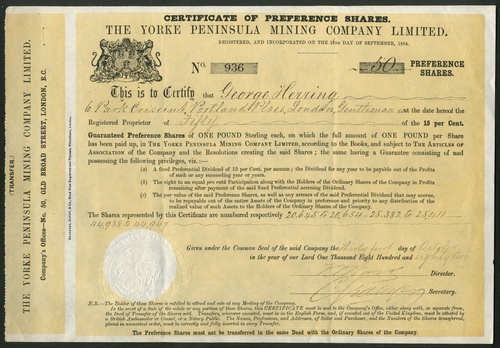 CERTIFICATE OF PREFERENCE SHARES.
THE YORKE PENINSULA MINING COMPANY LIMITED.
REGISTERED, AND INCORPORATED ON THE 27TH DAY OF SEPTEMBER, 1864.
No. 936
50 PREFERENCE SHARES.
This is to Certify that George Herring
6 Park Crescent, Portland Place, London, Gentleman is at the date hereof the
Registered Proprietor of Fifty of the 15 per Cent.
Guaranteed Preference Shares of ONE POUND Sterling each, on which the full amount of ONE POUND per Share
has been paid up, in THE YORKE PENINSULA MINING COMPANY LIMITED, according to the Books, and subject to THE ARTICLES OF
ASSOCIATION of the Company and the Resolutions creating the said Shares; the same having a Guarantee consisting of and
possessing the following privileges, viz:—
(A) A fixed Preferential Dividend of 15 per Cent. per annum; the Dividend for any year to be payable out of the Profits
of such or any succeeding year or years.
(B) The right to an equal pro rata Participation along with the Holders of the Ordinary Shares of the Company in Profits
remaining after payment of the said fixed Preferential accruing Dividend.
(C) The par value of the said Preference Shares, as well as any arrears of the said Preferential Dividend that may accrue,
to be repayable out of the entire Assets of the Company in preference and priority to any distribution of the
realized value of such Assets to the Holders of the Ordinary Shares of the Company.
The Shares represented by this Certificate are numbered respectively 20.645 to 20.654 - 25.392 to 25.411 -
44.938 to 44.947
Given under the Common Seal of the said Company the day of
in the year of our Lord One Thousand Eight Hundred and
Director.
Secretary.
N.B.—The Holder of these Shares is entitled to attend and vote at any Meeting of the Company.
In the event of a Sale of the whole or any portion of these Shares, this CERTIFICATE must be sent to the Company's Office, either along with, or separate from,
the Deed of Transfer of the Shares sold. Transfers, wherever executed, must be in the English Form, and, if executed out of the United Kingdom, must be attested by
a British Ambassador or Consul, or a Notary Public. The Names, Professions, and Addresses, of Seller and Purchaser, and the Numbers of the Shares transferred,
placed in numerical order, must be correctly and fully inserted in every Transfer.
The Preference Shares must not be transferred in the same Deed with the Ordinary Shares of the Company.
THE YORKE PENINSULA MINING COMPANY LIMITED.
Company's Offices—No. 50, OLD BROAD STREET, LONDON, E.C.
[TRANSFER.]